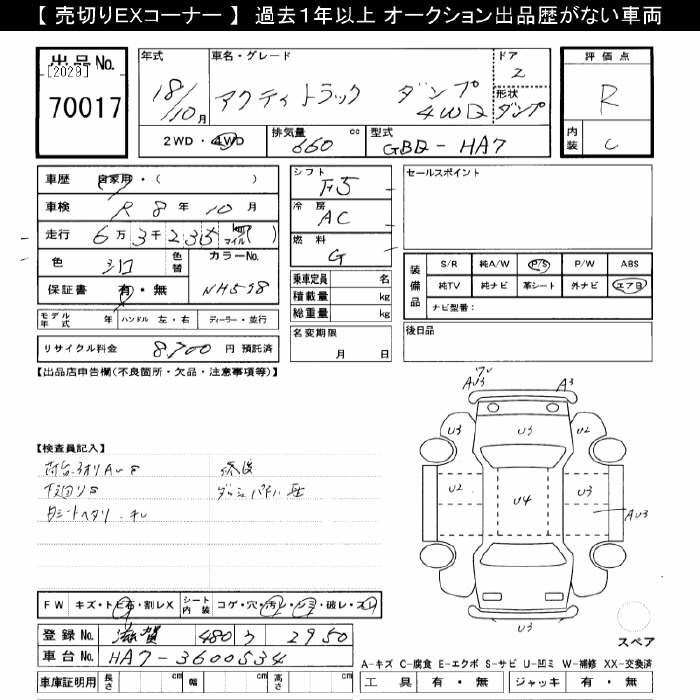 【 売切りEXコーナー 】 過去1年以上 オークション出品歴がない車両
出品No.
[2029]
70017
年式
18/10月
車名・グレード
アクティ トラック ダンプ 4WD
ドア
2
形状
ダンプ
2WD・4WD
排気量
660 cc
型式
GBD-HA7
評価点
R
内装
C
車歴 自家用・( )
車検 R 8 年 10 月
走行 6万 3千 235 km マイル ( )
色 シロ 色替 カラーNo.
保証書 有・無 NH538
モデル年式 年 ハンドル 左・右 ディーラー・並行
リサイクル料金 8,700 円 預託済
シフト
F5
冷房
AC
燃料
G
乗車定員 名
積載量 kg
総重量 kg
名変期限
月 日
セールスポイント
装備品
S/R 純A/W P/S P/W ABS
純TV 純ナビ 革シート 外ナビ エアB
ナビ型番：
後日品
【出品店申告欄(不良箇所・欠品・注意事項等)】
【検査員記入】
下回りS
FW キズ・トビ石・割レX シート内装 コゲ・穴・汚レ・シミ・破レ・スレ
登録No. 滋賀 480 ウ 2950
車台No. HA7-3600534
車庫証明用 長さ cm 幅 cm 高さ cm
AU3 A3
U3 U3 U2
U2 U4 U3
AU3
U3
スペア
A-キズ C-腐食 E-エクボ S-サビ U-凹ミ W-補修 XX-交換済
工具 有・無 ジャッキ 有・無